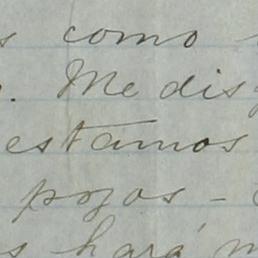 s como
. Me dis
estamos
pojos -
s hará m